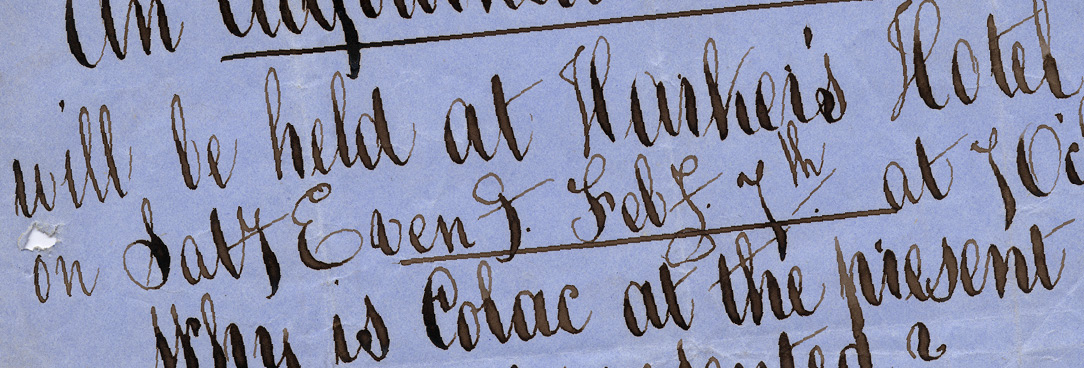 An
will be held at Harker's Hotel
on Saty Eveng. Feby. 7th. at 7 O'c
Why is Colac at the present
?